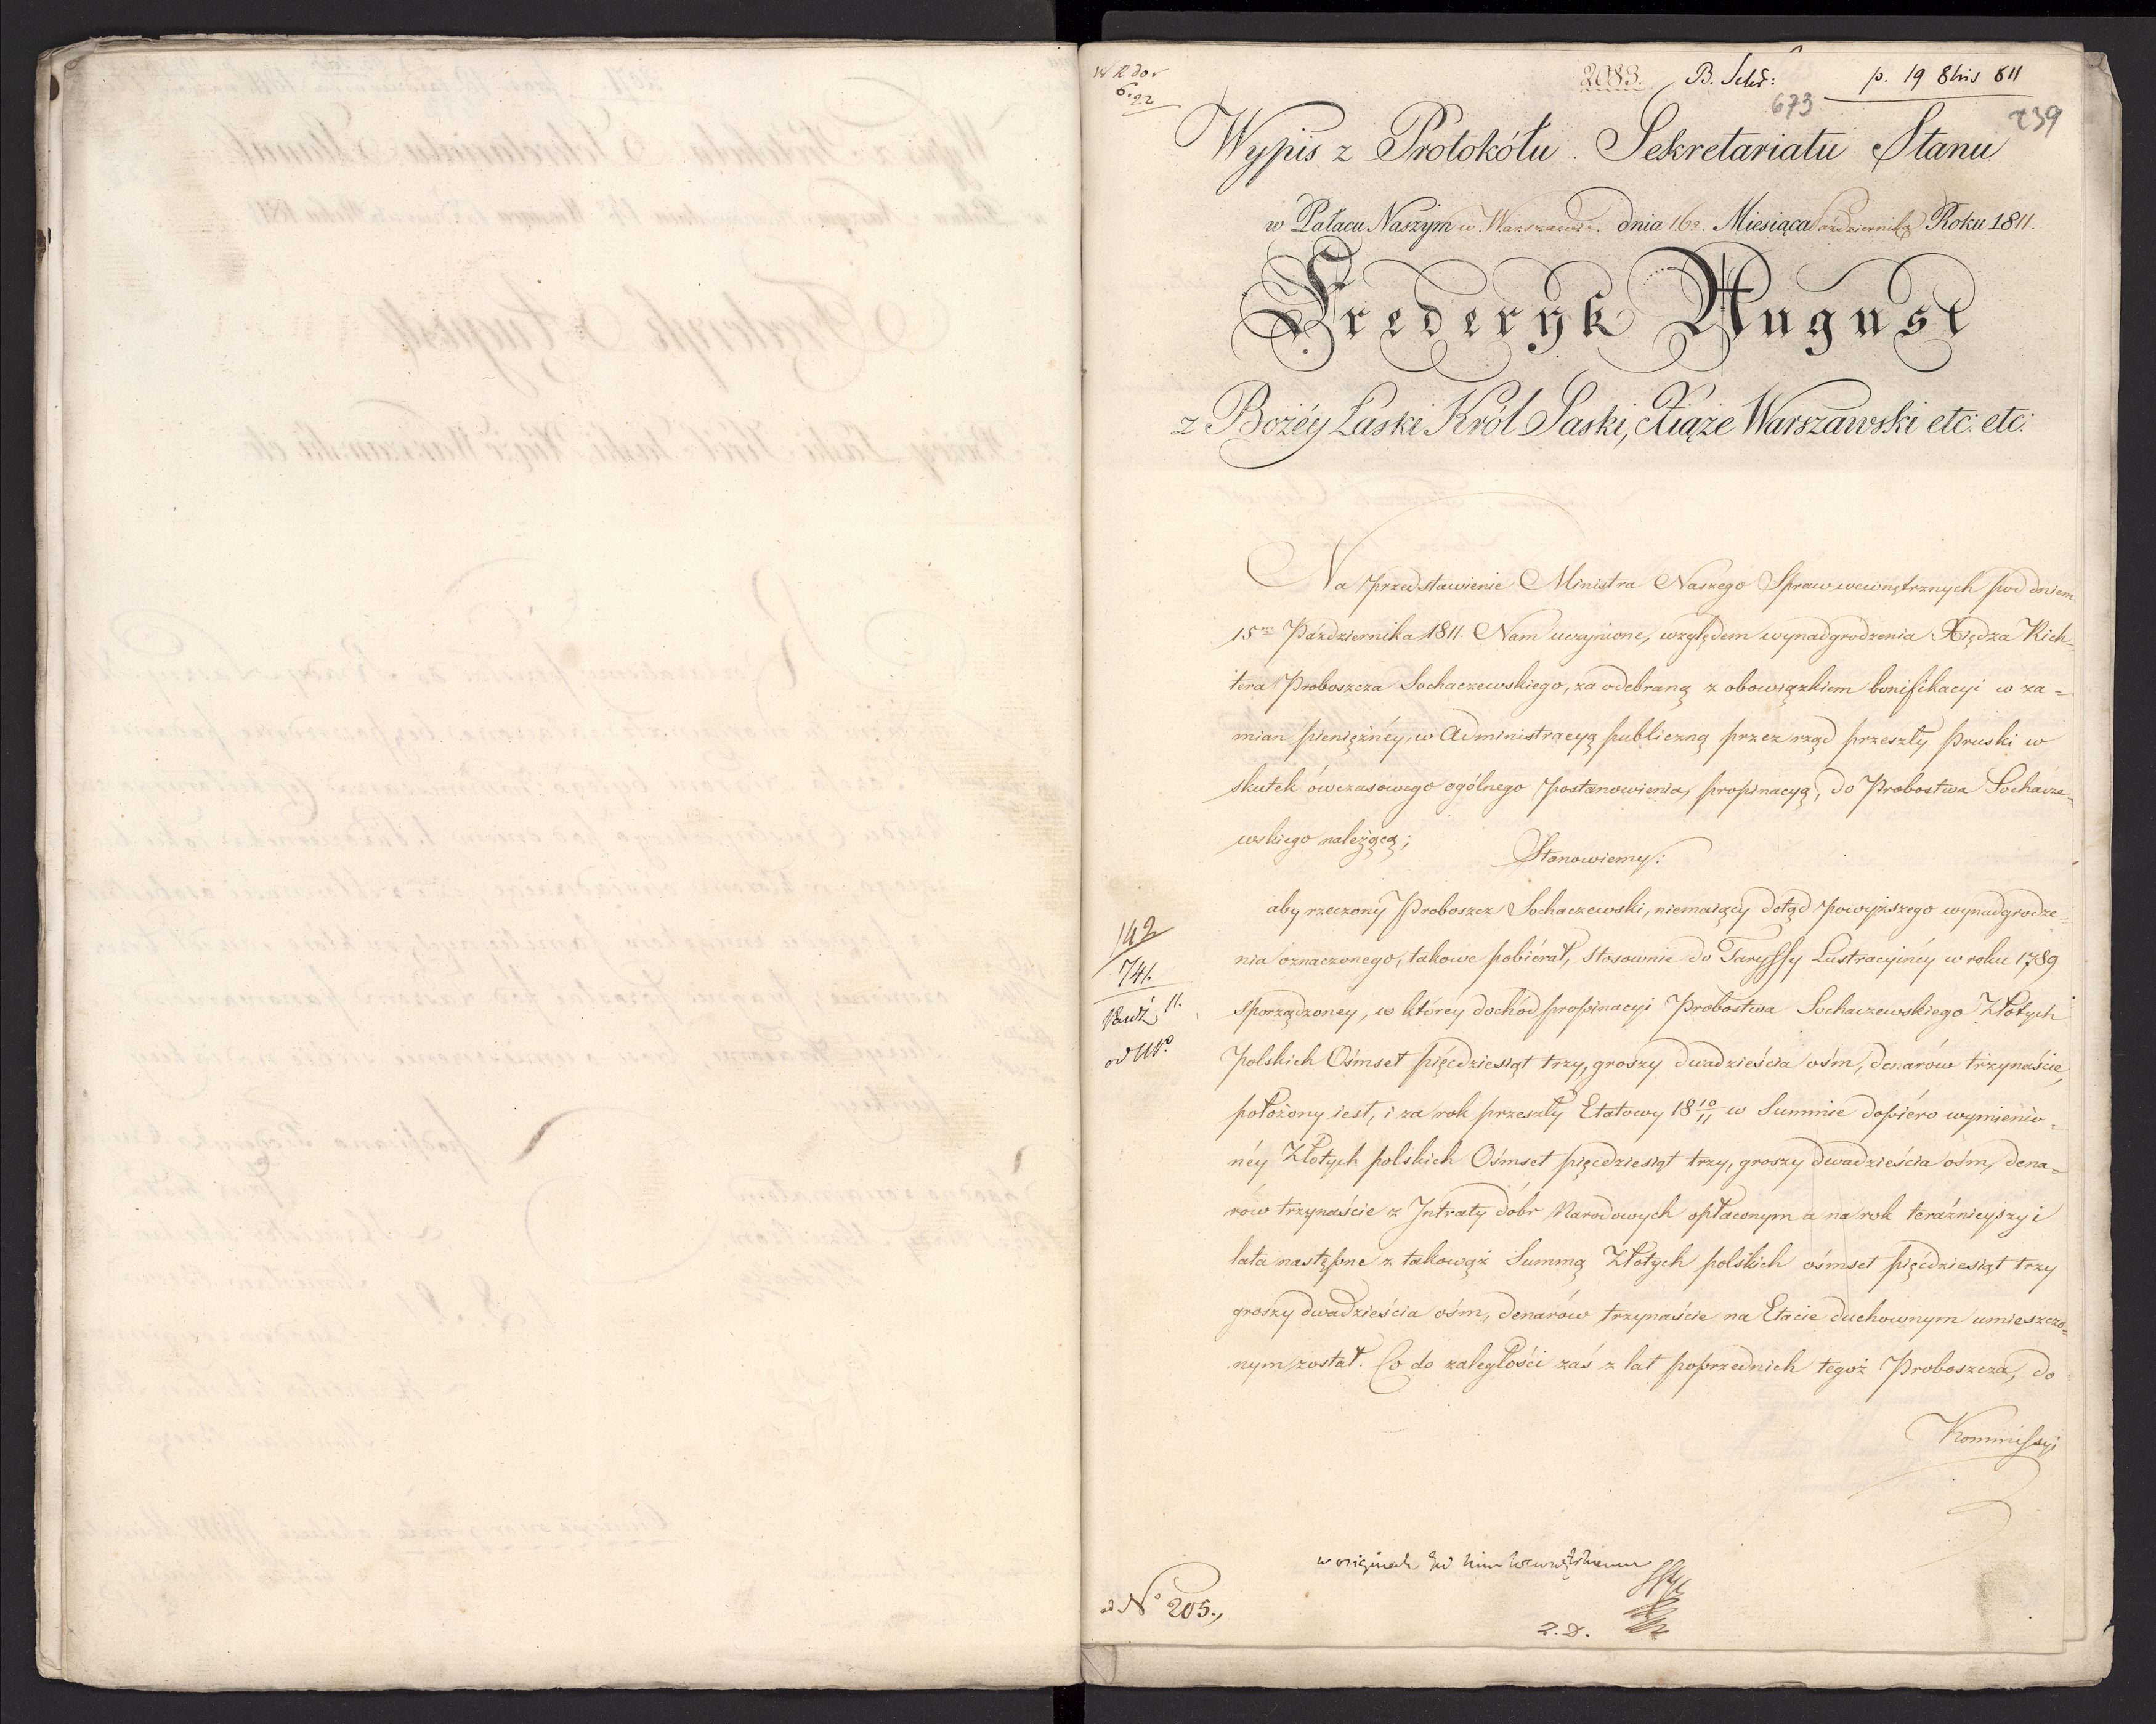 2083. B. Sekr: p. 19 8bris 811
673
239
6.22
Wypis z Protokółu Sekretariatu Stanu
w Pałacu Naszym w Warszawie. dnia 16o. Miesiąca Października Roku 1811.
Frederyk August
z Bożéy Łaski Król Saski, Xiąże Warszawski etc: etc:
Na przedstawienie Ministra Naszego Spraw wewnętrznych pod dniem
15m Października 1811. Nam uczynione, względem wynadgrodzenia Xiędza Rich-
tera Proboszcza Sochaczewskiego, za odebraną z obowiązkiem bonifikacyi w za=
mian pieniężnéy, w Administracyą publiczną przez rząd przeszły pruski w
skutek ówczasowego ogólnego postanowienia, propinacyą, do Probostwa Sochacze=
wskiego należącą; Stanowiemy:
aby rzeczony Proboszcz Sochaczewski, niemaiący dotąd powyższego wynadgrodze=
nia oznaczonego, takowe pobiérał, stosownie do Taryffy Lustracyinéy w roku 1789
sporządzoney, w któréy dochód propinacyi Probostwa Sochaczewskiego Złotych
Polskich Ośmset pięcdziesiąt trzy, groszy dwadzieścia ośm, denarów trzynaście,
położony iest, i za rok przeszły Etatowy 18 10/11 w Summie dopiéro wymienio=
néy Złotych polskich Ośmset pięcdziesiąt trzy, groszy dwadzieścia ośm, dena=
rów trzynaście z Intraty dóbr Narodowych opłaconym a na rok teraźnieyszy i
lata następne z takowąż Summą Złotych polskich ośmset pięćdziesiąt trzy
groszy dwadzieścia ośm, denarów trzynaście na Etacie duchownym umieszczo=
nym został. Co do zaległości zaś z lat poprzednich tegoż Proboszcza, do
Kommissyi
142
741.
Paźd. 11.
w originale
ad No 205.,
2.D.